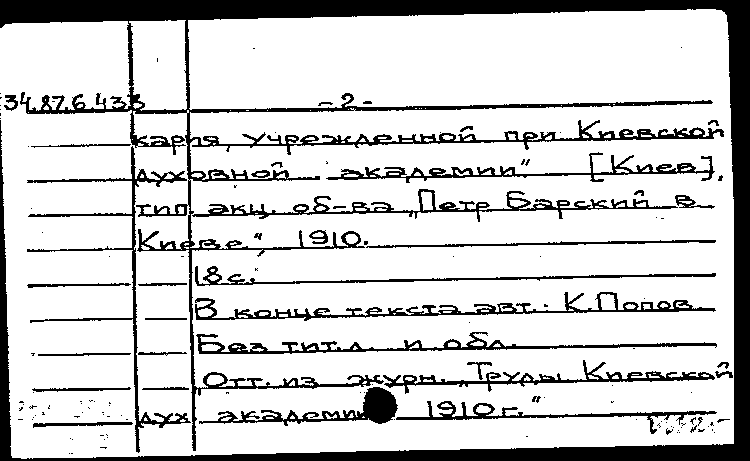 34.87.6.433 - 2 -
кария, учрежденной при Киевской
духовной академии." [Киев],
тип. акц. об-ва „Петр Барский в
Киеве", 1910.
18 с.
В конце текста авт.: К. Попов.
Без тит. л. и обл.
Отт. из журн. „Труды Киевской
дух. академии 1910 г."